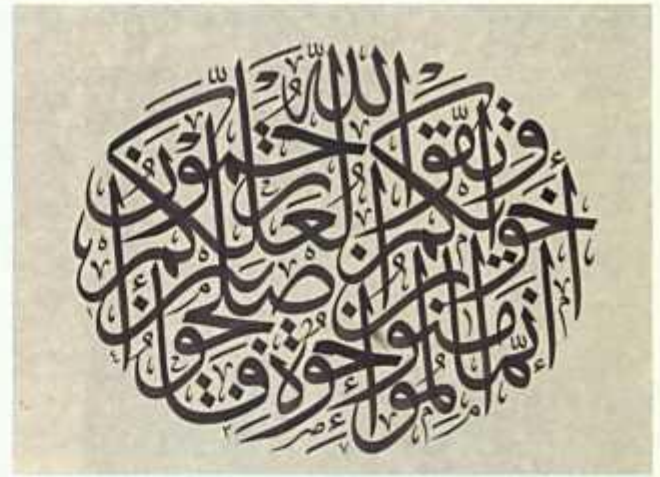 إنما المؤمنون إخوة فأصلحوا بين أخويكم واتقوا الله لعلكم ترحمون